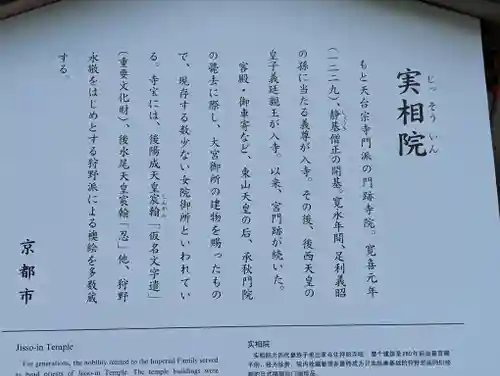 実相院
じっそういん
もと天台宗寺門派の門跡寺院。寛喜元年
(一二二九)、静基僧正の開基。寛永年間、足利義昭
の孫に当たる義尊が入寺。その後、後西天皇の
皇子義延親王が入寺。以来、宮門跡が続いた。
客殿・御車寄など、東山天皇の后、承秋門院
の薨去に際し、大宮御所の建物を賜ったもの
で、現存する数少ない女院御所といわれてい
る。寺宝には、後陽成天皇宸翰「仮名文字遣」
(重要文化財)、後水尾天皇宸翰「忍」他、狩野
永敬をはじめとする狩野派による襖絵を多数蔵
する。
京都市
Jisso-in Temple
For generations, the nobility related to the Imperial Family served
as head priests of Jisso-in Temple. The temple buildings were
实相院